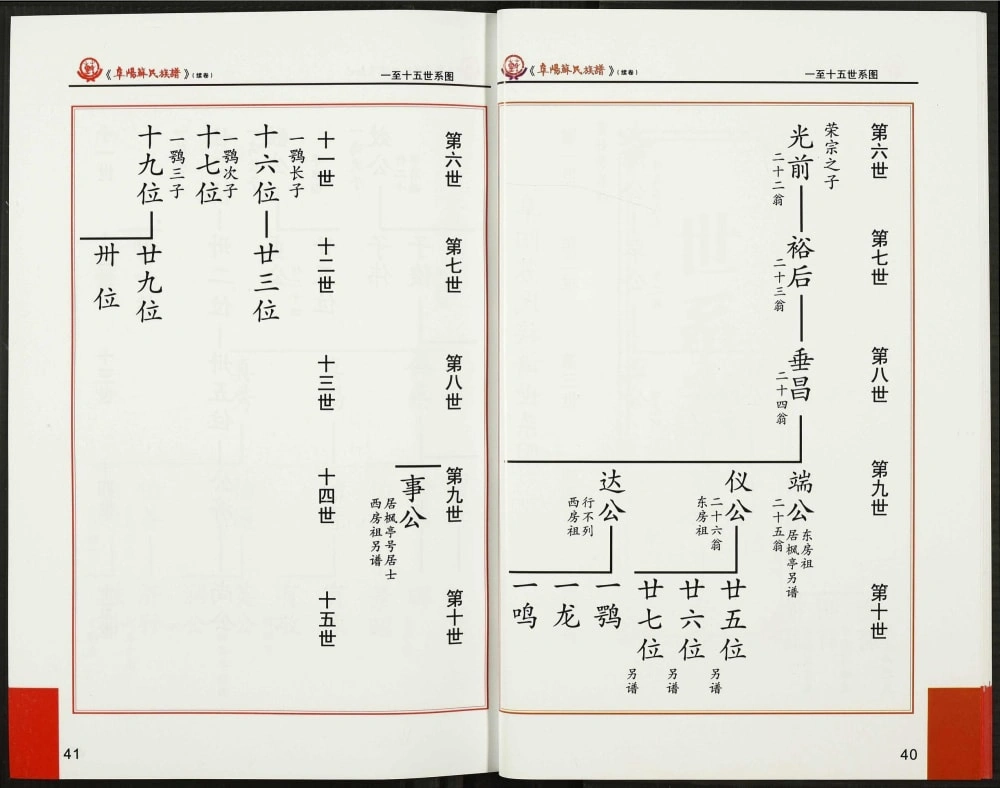 《阜陽蘇氏族譜》(续卷)
一至十五世系图
第六世
荣宗之子
光前
二十二翁
第七世
裕后
二十三翁
第八世
垂昌
二十四翁
第九世
端公
东房祖
居枫亭另谱
二十五翁
仪公
二十六翁
东房祖
达公
行不列
西房祖
第十世
廿五位
另谱
廿六位
另谱
廿七位
另谱
一鹗
一龙
一鸣
40
《阜陽蘇氏族譜》(续卷)
一至十五世系图
第六世
第七世
第八世
第九世
事公
居枫亭号居士
西房祖另谱
第十世
十一世
一鹗长子
十六位
一鹗次子
十七位
一鹗三子
十九位
十二世
廿三位
廿九位
卅位
十三世
十四世
十五世
41